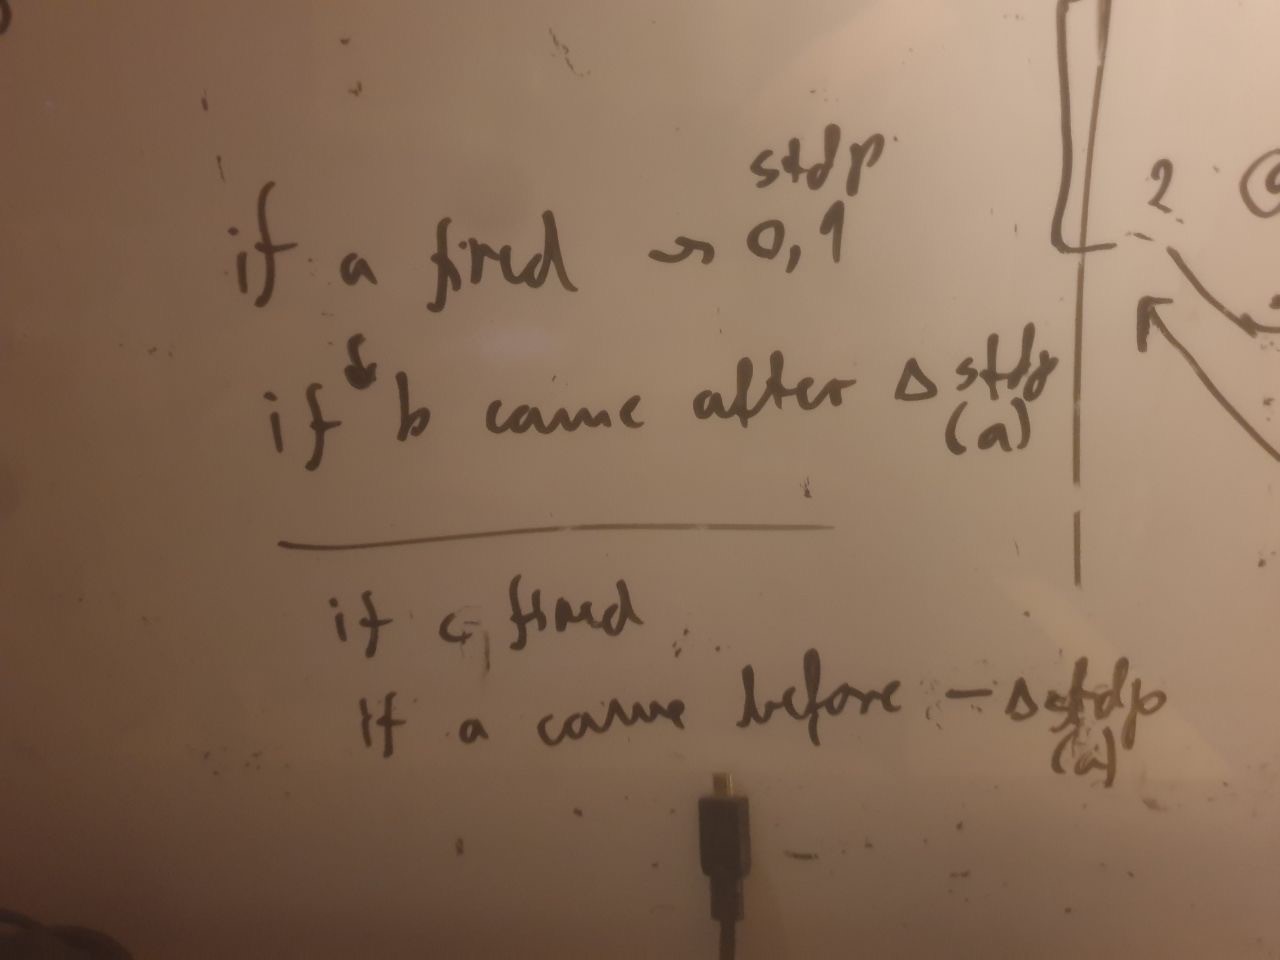 stdp
if a fired → 0,1
if b came after Δ stdp
(a)
if c fired
if a came before - Δ stdp
(a)
2